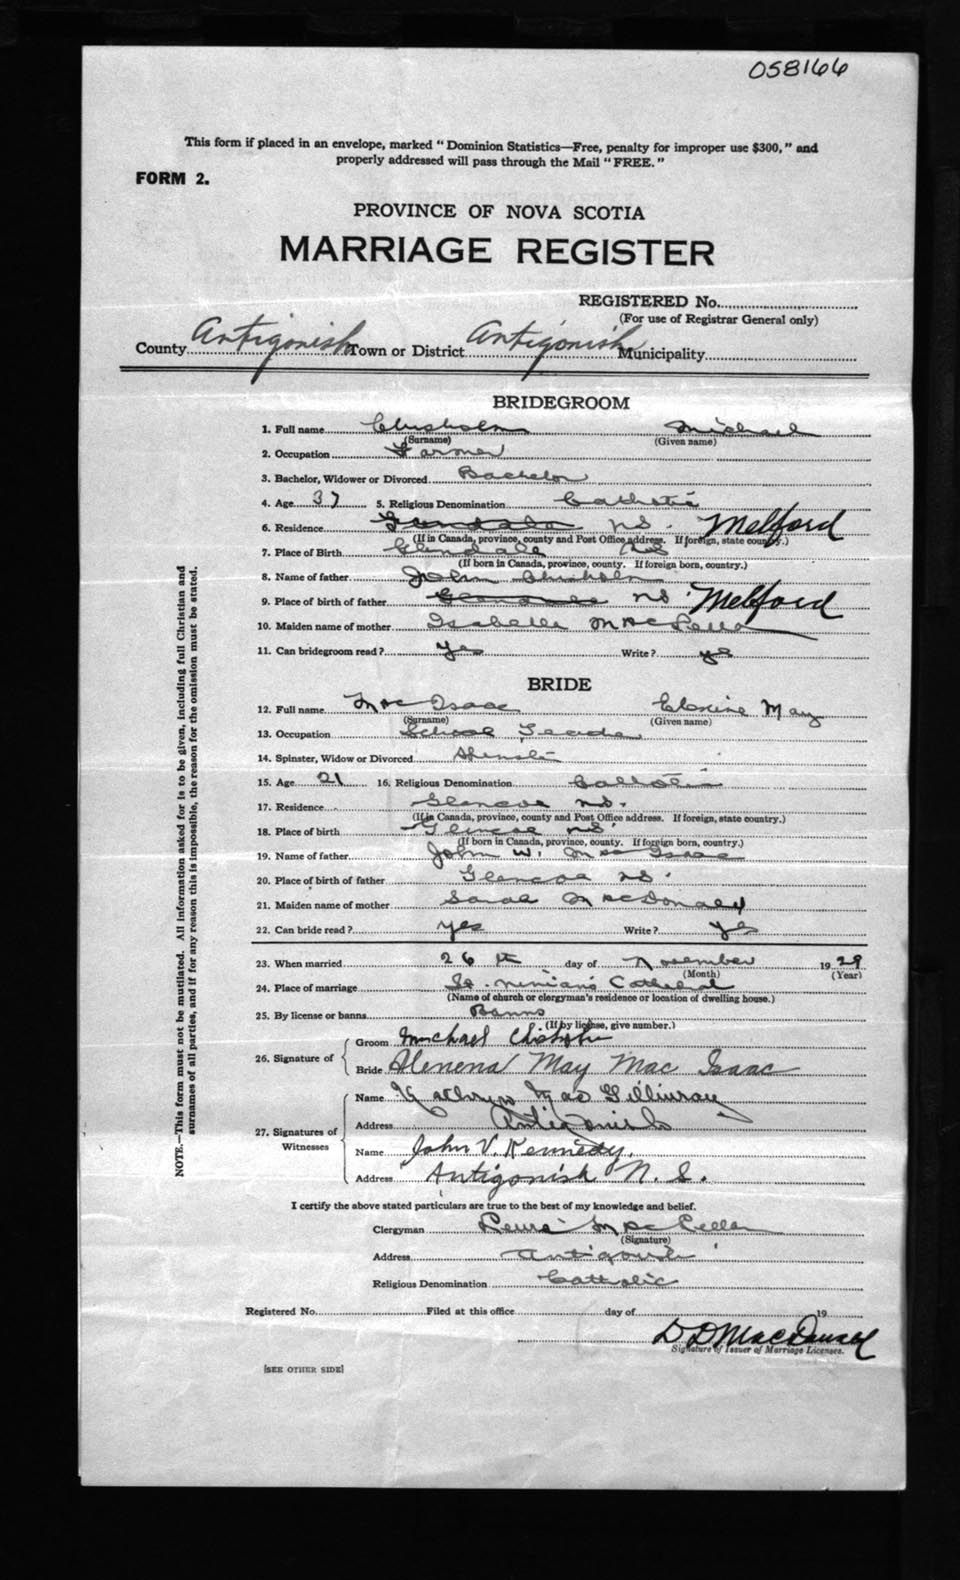 058166
This form if placed in an envelope, marked "Dominion Statistics—Free, penalty for improper use $300," and
properly addressed will pass through the Mail "FREE."
FORM 2.
PROVINCE OF NOVA SCOTIA
MARRIAGE REGISTER
REGISTERED No.
(For use of Registrar General only)
County Antigonish Town or District Antigonish Municipality
BRIDEGROOM
1. Full name Chisholm Michael
(Surname) (Given name)
2. Occupation Farmer
3. Bachelor, Widower or Divorced Bachelor
4. Age 37 5. Religious Denomination Catholic
6. Residence Glendale NS. Melford
(If in Canada, province, county and Post Office address. If foreign, state country.)
7. Place of Birth Glendale NS
(If born in Canada, province, county. If foreign born, country.)
8. Name of father John Chisholm
9. Place of birth of father NS Melford
10. Maiden name of mother Isabelle MacLellan
11. Can bridegroom read? yes Write? yes
BRIDE
12. Full name MacIsaac May
(Surname) (Given name)
13. Occupation School Teacher
14. Spinster, Widow or Divorced Spinster
15. Age 21 16. Religious Denomination Catholic
17. Residence Glencoe NS.
(If in Canada, province, county and Post Office address. If foreign, state country.)
18. Place of birth Glencoe NS
(If born in Canada, province, county. If foreign born, country.)
19. Name of father John W. MacIsaac
20. Place of birth of father Glencoe NS.
21. Maiden name of mother Sarah MacDonald
22. Can bride read? yes Write? yes
23. When married 26th day of November 1929
(Month) (Year)
24. Place of marriage St. Ninian's Cathedral
(Name of church or clergyman's residence or location of dwelling house.)
25. By license or banns Banns
(If by license, give number.)
26. Signature of Groom Michael Chisholm
Bride May Mac Isaac
27. Signatures of Witnesses Name Kathryn MacGillivray
Address Antigonish
Name John V. Kennedy.
Address Antigonish N. S.
I certify the above stated particulars are true to the best of my knowledge and belief.
Clergyman MacLellan
(Signature)
Address Antigonish
Religious Denomination Catholic
Registered No. Filed at this office day of 19
D D MacDonald
Signature of Issuer of Marriage Licenses.
[SEE OTHER SIDE]
NOTE.—This form must not be mutilated. All information asked for is to be given, including full Christian and
surnames of all parties, and if for any reason this is impossible, the reason for the omission must be stated.